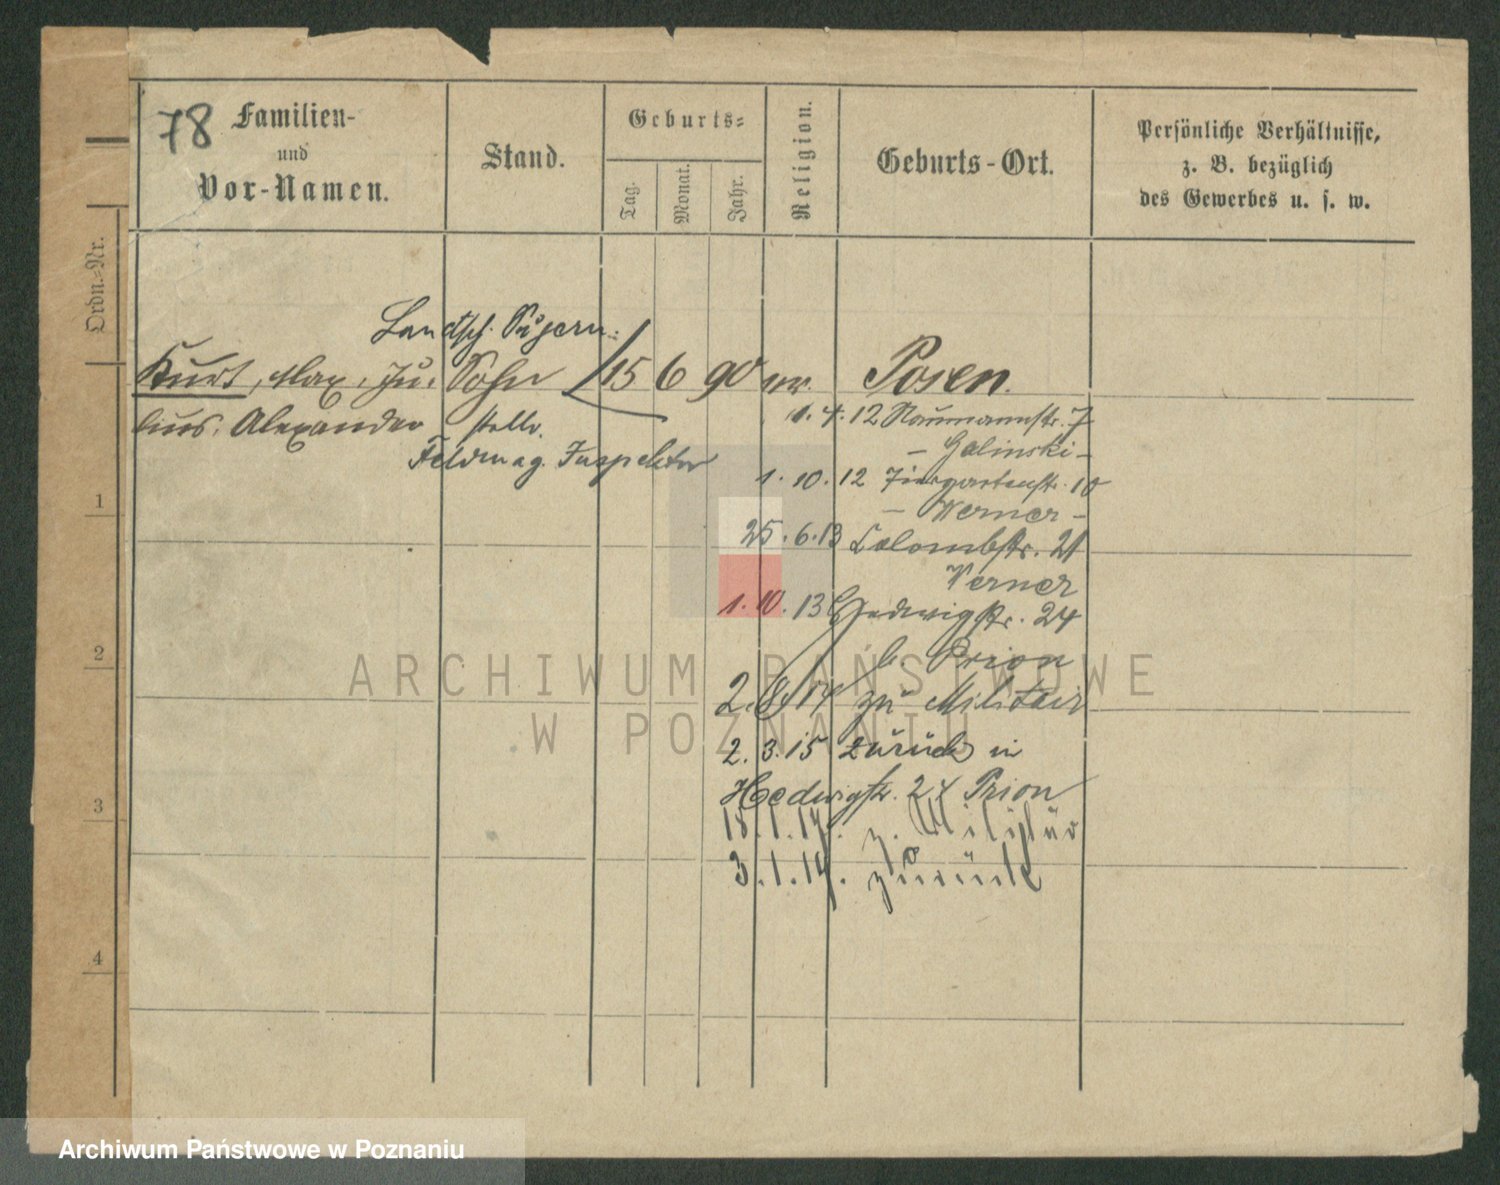 78
Familien-
und
Vor-Namen.
Stand.
Geburts-
Tag.
Monat.
Jahr.
Religion.
Geburts-Ort.
Persönliche Verhältnisse,
z. B. bezüglich
des Gewerbes u. s. w.
Ordn.-Nr.
Landsch.
Kurt, Max, Ju- Sohn 15 6 90 Posen.
lius, Alexander stellv.
Feldmag. Inspektor
1. 4. 12 Naumannstr. 7
- Galinski -
1. 10. 12 Tiergartenstr. 10
- Werner -
1
25. 6. 13 Colombstr. 21
Werner
1. 10. 13 Hedwigstr. 24
b. Prion
2
2. 8. 14 zu Militair
2. 3. 15 zurück in
Hedwigstr. 24 Prion
3
18. 1. 17. z. Militär
3. 1. 19. zurück
4
ARCHIWUM PAŃSTWOWE
W POZNANIU
Archiwum Państwowe w Poznaniu